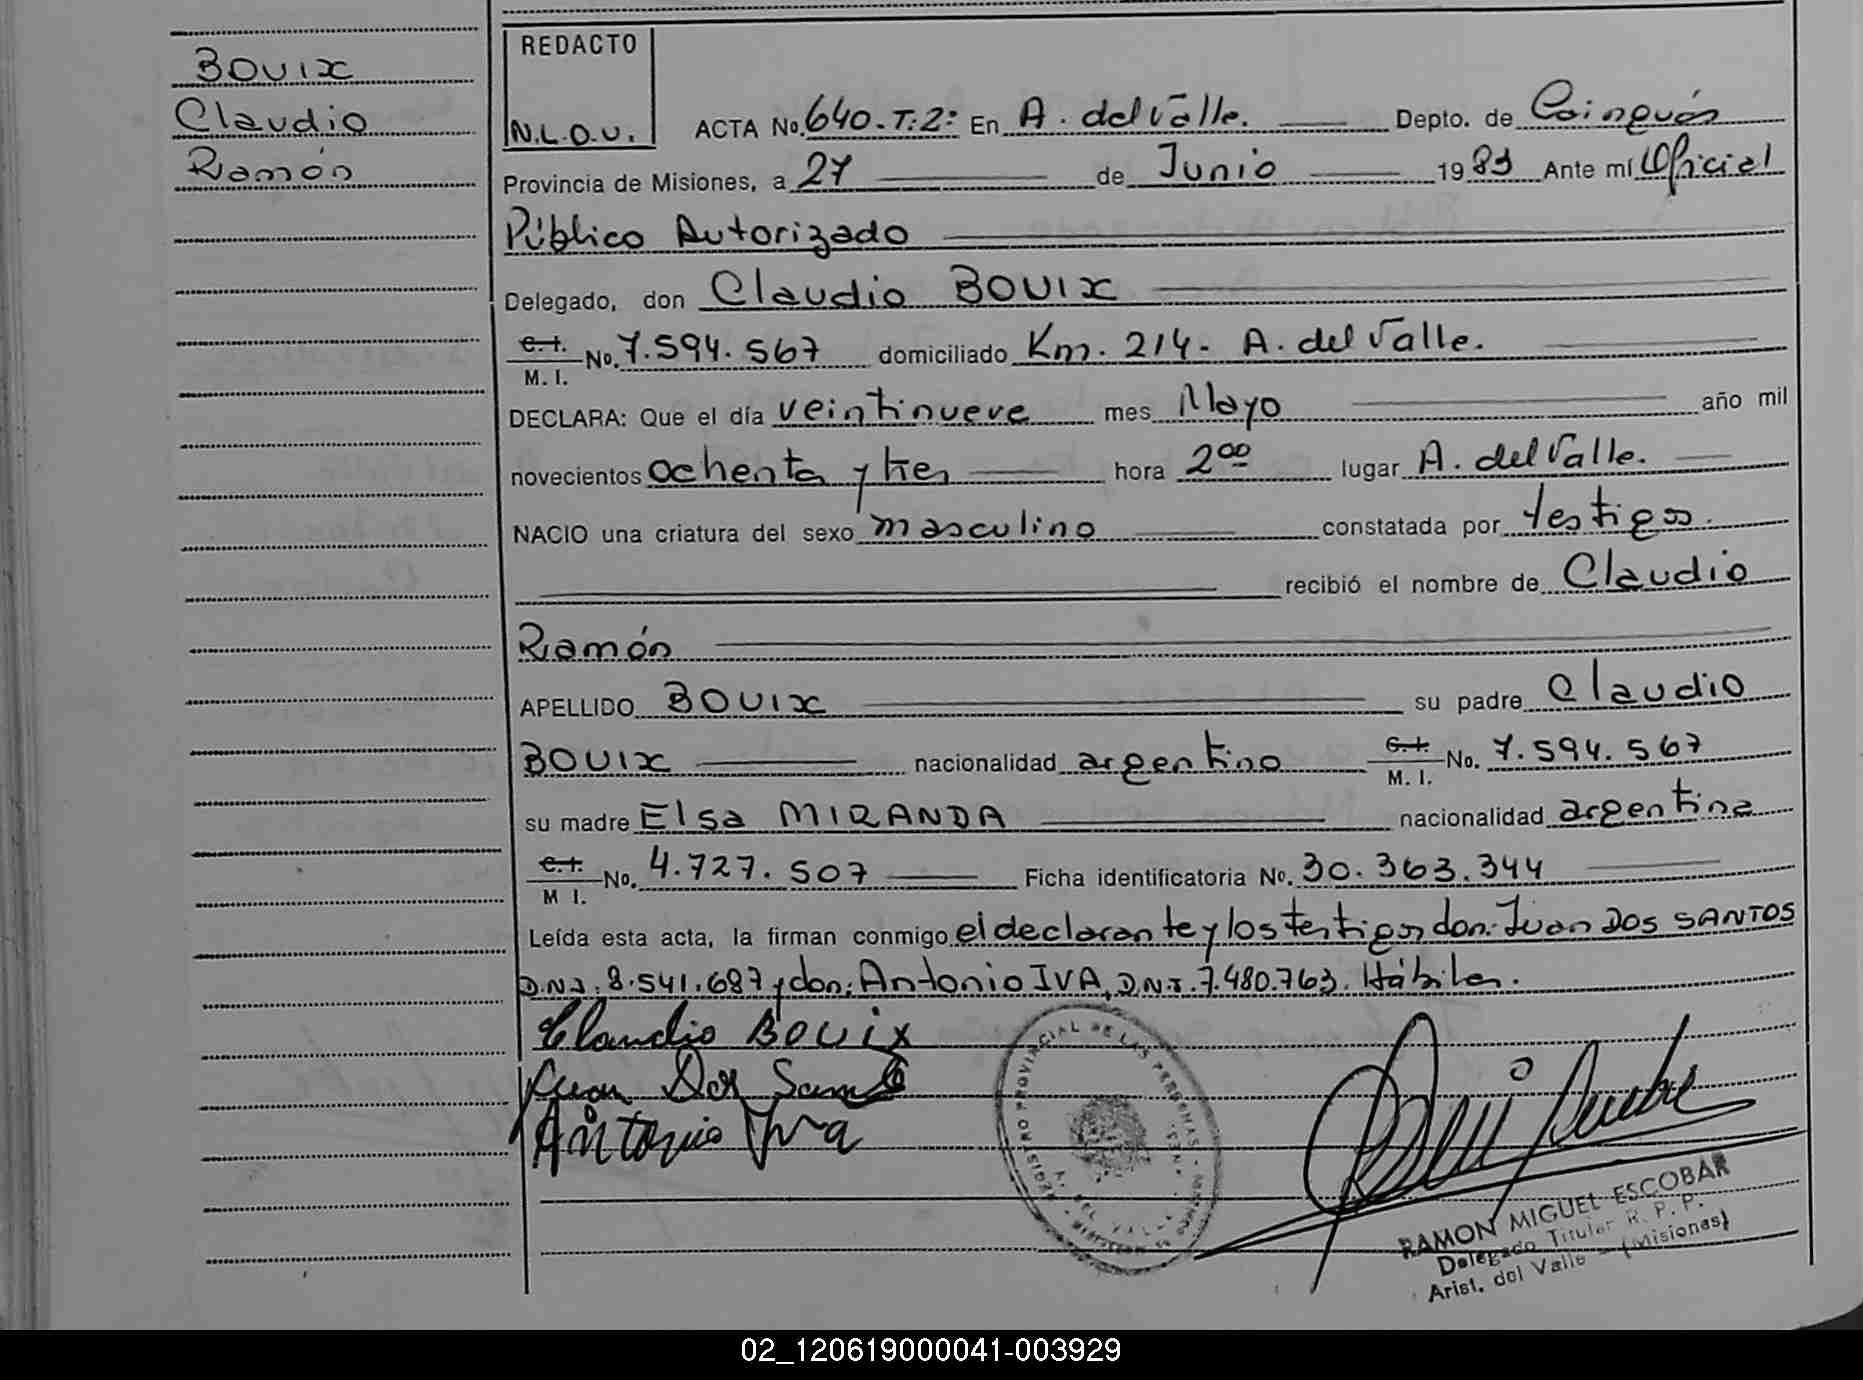 BOUIX
Claudio
Ramón
REDACTO
N.L.O.U.
ACTA No. 640-T:2º En A. del Valle. Depto. de Cainguás
Provincia de Misiones, a 27 de Junio 1983 Ante mí Oficial
Público Autorizado
Delegado, don Claudio BOUIX
C.I. M. I. No. 7.594.567 domiciliado Km. 214. A. del Valle.
DECLARA: Que el día veintinueve mes Mayo año mil
novecientos ochenta y tres hora 2⁰⁰ lugar A. del Valle.
NACIO una criatura del sexo masculino constatada por testigos.
recibió el nombre de Claudio
Ramón
APELLIDO BOUIX su padre Claudio
BOUIX nacionalidad argentino C.I. M. I. No. 7.594.567
su madre Elsa MIRANDA nacionalidad argentina
C.I. M I. No. 4.727.507 Ficha identificatoria No. 30.363.344
Leída esta acta, la firman conmigo el declarante y los testigos don: Juan DOS SANTOS
D.N.I. 8.541.687 y don: Antonio IVA, D.N.I. 7.480.763. Hábiles.
Claudio BOUIX
Juan Dos Santo
Antonio Iva
REGISTRO PROVINCIAL DE LAS PERSONAS
A. DEL VALLE
RAMON MIGUEL ESCOBAR
Delegado Titular R. P. P.
Arist. del Valle - (Misiones)
02_120619000041-003929